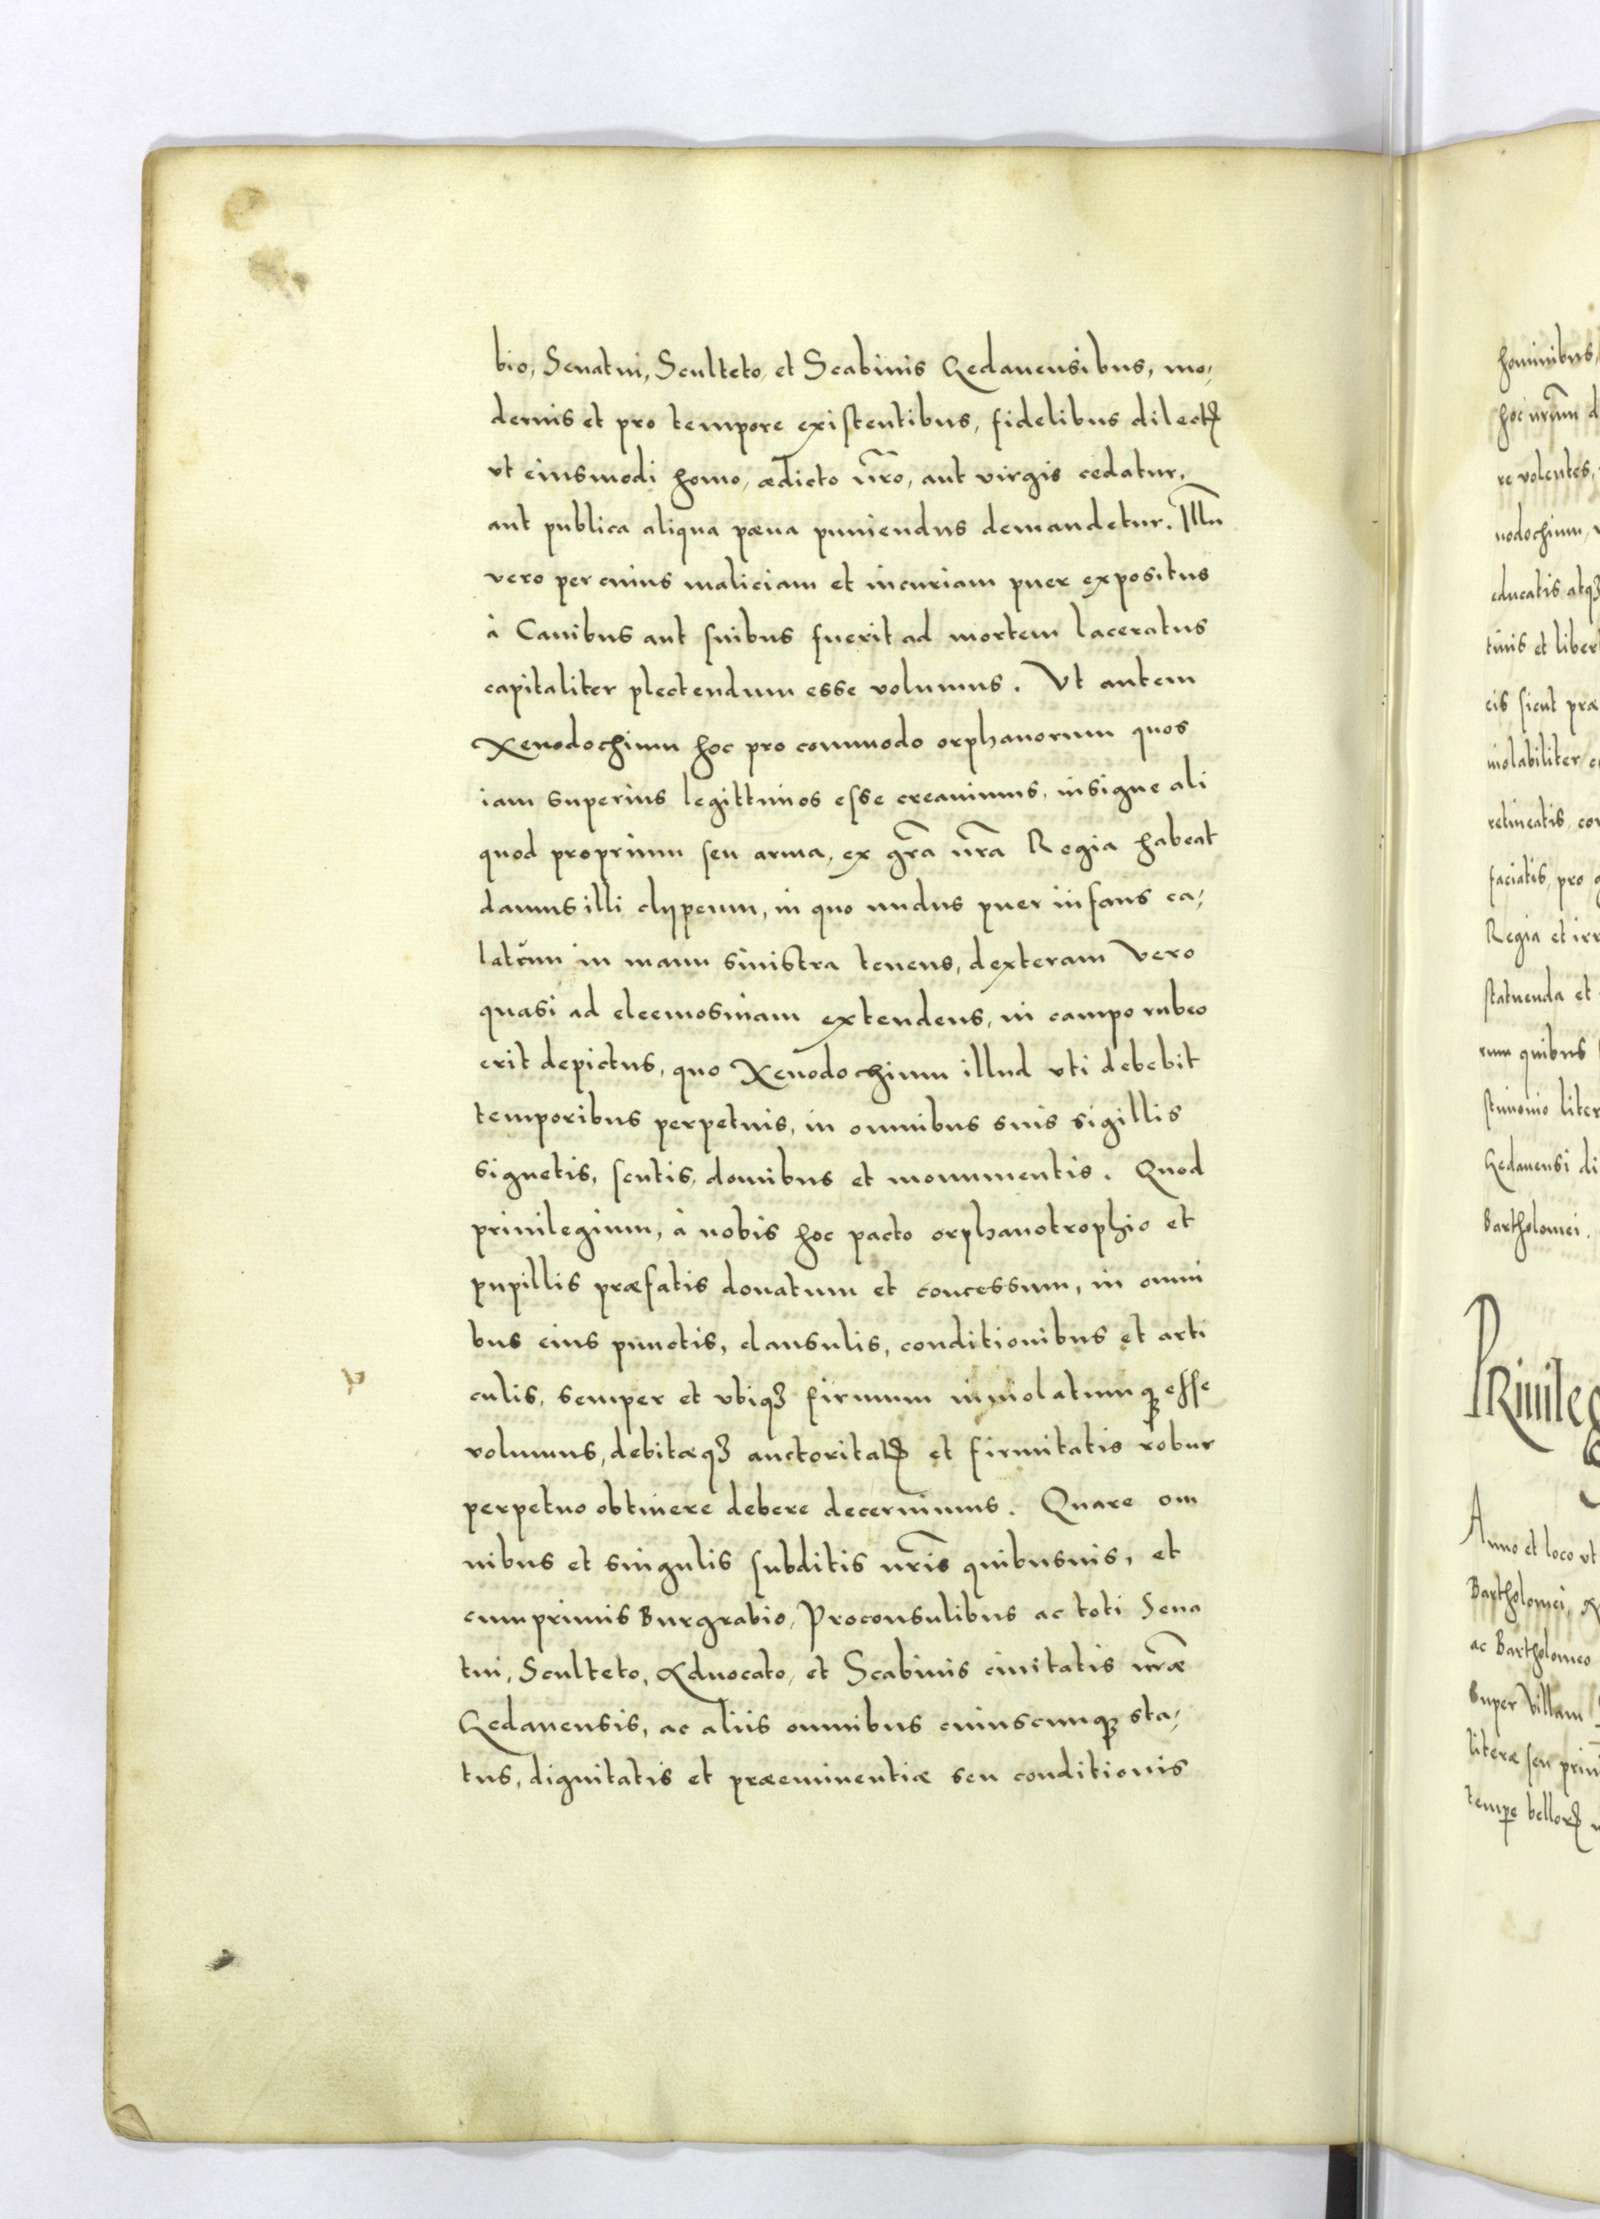 bio, Senatui, Sculteto, et Scabinis Gedanensibus, mo,
dernis et pro tempore existentibus, fidelibus dilectꝭ
vt eiusmodi homo, ædicto nr̃o, aut virgis cedatur,
aut publica aliqua pæna puniendus demandetur. Illũ
vero per cuius maliciam et incuriam puer expositus
à Canibus aut suibus fuerit ad mortem laceratus
capitaliter plectendum esse volumus. Vt autem
Xenodochium hoc pro commodo orphanorum quos
iam superius legittimos esse creauimus, insigne ali
quod proprium seu arma, ex gr̃a nr̃a Regia habeat
damus illi clypeum, in quo nudus puer infans ca,
latum in manu sinistra tenens, dexteram vero
quasi ad eleemosinam extendens, in campo rubeo
erit depictus, quo Xenodochium illud vti debebit
temporibus perpetuis, in omnibus suis sigillis
signetis, scutis, domibus et monumentis. Quod
priuilegium, à nobis hoc pacto orphanotrophio et
pupillis præfatis donatum et concessum, in omni
bus eius punctis, clausulis, conditionibus et arti
culis, semper et vbiqꝫ firmum inuiolatumqꝫ esse
volumus, debitæqꝫ auctoritatꝭ et firmitatis robur
perpetuo obtinere debere decernimus. Quare om
nibus et singulis subditis nr̃is quibusuis, et
cumprimis Burgrabio, Proconsulibus ac toti Sena
tui, Sculteto, Aduocato, et Scabinis ciuitatis nr̃æ
Gedanensis, ac aliis omnibus cuiuscunqꝫ sta,
tus, dignitatis et præeminentiæ seu conditionis
hominibus,
hoc nr̃um d
re volentes,
nodochium,
educatis atqꝫ
tinis et libert
cis sicut præ
uiolabiliter
retineatis, con
faciatis, pro g
Regia et irr
statuenda et
rum quibus
stimonio liter
Gedanensi di
Bartholomei.
PRiuileg
Anno et loco vt
Bartholomei,
ac Bartholomeo
Super Villam
literæ seu priui
tempe bellorꝭ